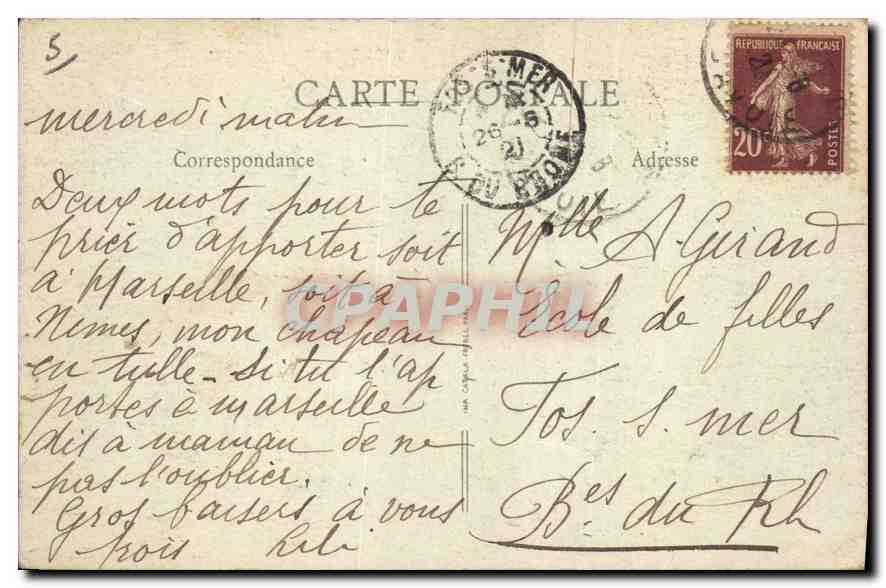 5
CARTE POSTALE
mercredi matin
Correspondance
Adresse
Deux mots pour te
prier d'apporter soit
à Marseille, soit à
Nimes, mon chapeau
en tulle - si tu l'ap
portes à marseille
dis à maman de ne
pas l'oublier.
Gros baisers à vous
trois
Mlle A. Girand
Ecole de filles
Fos. s. mer
Bes du Rh
FOS-S-MER
26 -5
21
DU RHONE
REPUBLIQUE FRANÇAISE
20
POSTES
CPAPHIL